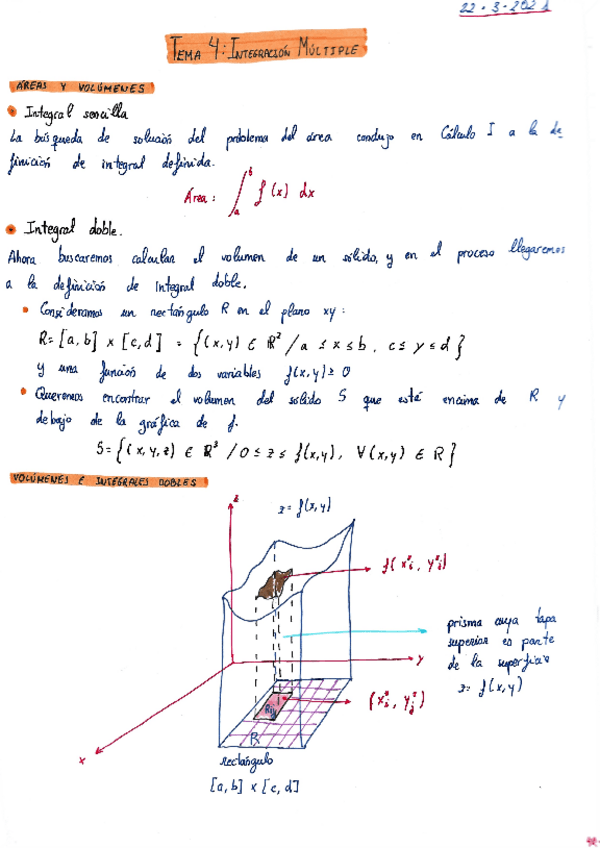 22-3-2021
TEMA 4: INTEGRACIÓN MÚLTIPLE
ÁREAS Y VOLÚMENES
• Integral sencilla
La búsqueda de solución del problema del área condujo en Cálculo I a la de-
finición de integral definida.
Área: ∫_a^b f(x) dx
• Integral doble.
Ahora buscaremos calcular el volumen de un sólido, y en el proceso llegaremos
a la definición de integral doble.
• Consideramos un rectángulo R en el plano xy:
R=[a,b] x [c,d] = {(x,y) ∈ R² / a ≤ x ≤ b, c ≤ y ≤ d}
y una función de dos variables f(x,y) ≥ 0
• Queremos encontrar el volumen del sólido S que está encima de R y
debajo de la gráfica de f.
S={(x,y,z) ∈ R³ / 0 ≤ z ≤ f(x,y), ∀(x,y) ∈ R}
VOLÚMENES E INTEGRALES DOBLES
z
z=f(x,y)
f(x*i, y*j)
prisma cuya tapa
superior es parte
de la superficie
z=f(x,y)
y
(x*i, y*j)
Rij
R
x
rectángulo
[a,b] x [c,d]